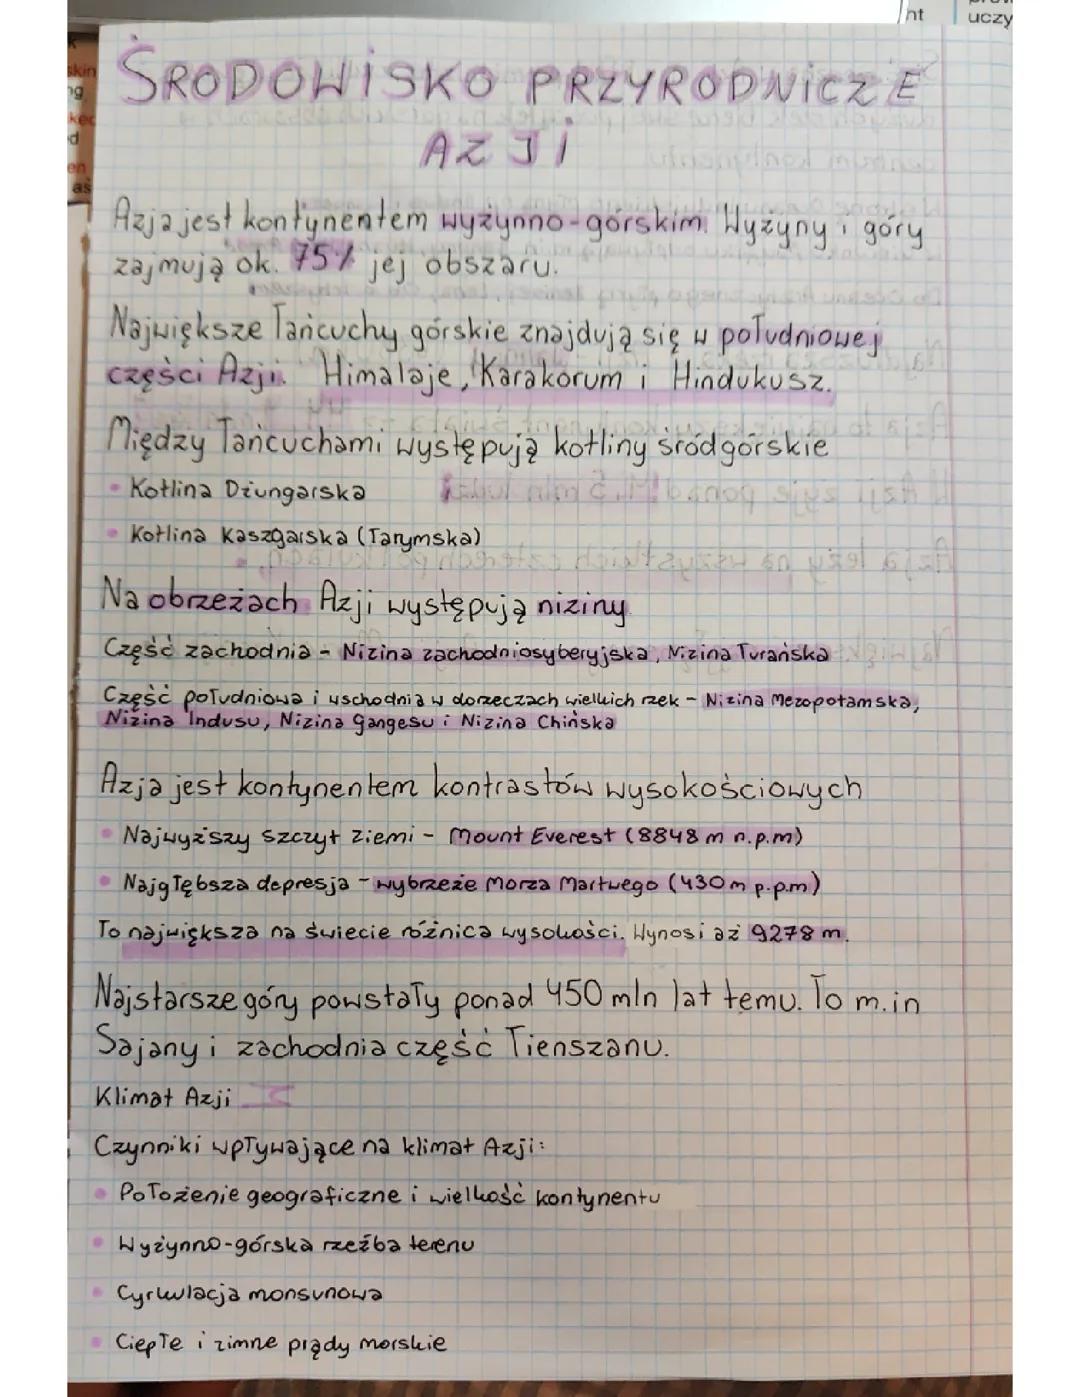 nt
uczy
ŚRODOWISKO PRZYRODNICZE
AZJI
Azja jest kontynentem wyżynno-górskim. Wyżyny i góry
zajmują ok. 75% jej obszaru.
Największe łańcuchy górskie znajdują się w południowej
części Azji. Himalaje, Karakorum i Hindukusz.
Między łańcuchami występują kotliny śródgórskie
• Kotlina Dżungarska
• Kotlina Kaszgarska (Tarymska)
Na obrzeżach Azji występują niziny.
Część zachodnia - Nizina zachodniosyberyjska, Nizina Turańska
Część południowa i wschodnia w dorzeczach wielkich rzek - Nizina Mezopotamska,
Nizina Indusu, Nizina Gangesu i Nizina Chińska
Azja jest kontynentem kontrastów wysokościowych
• Najwyższy szczyt ziemi - Mount Everest (8848 m n.p.m)
• Najgłębsza depresja - wybrzeże Morza Martwego (430m p.p.m)
To największa na świecie różnica wysokości. Wynosi aż 9278 m.
Najstarsze góry powstały ponad 450 mln lat temu. To m.in
Sajany i zachodnia część Tienszanu.
Klimat Azji
Czynniki wpływające na klimat Azji:
• Położenie geograficzne i wielkość kontynentu
• Wyżynno-górska rzeźba terenu
• Cyrkulacja monsunowa
• Ciepłe i zimne prądy morskie